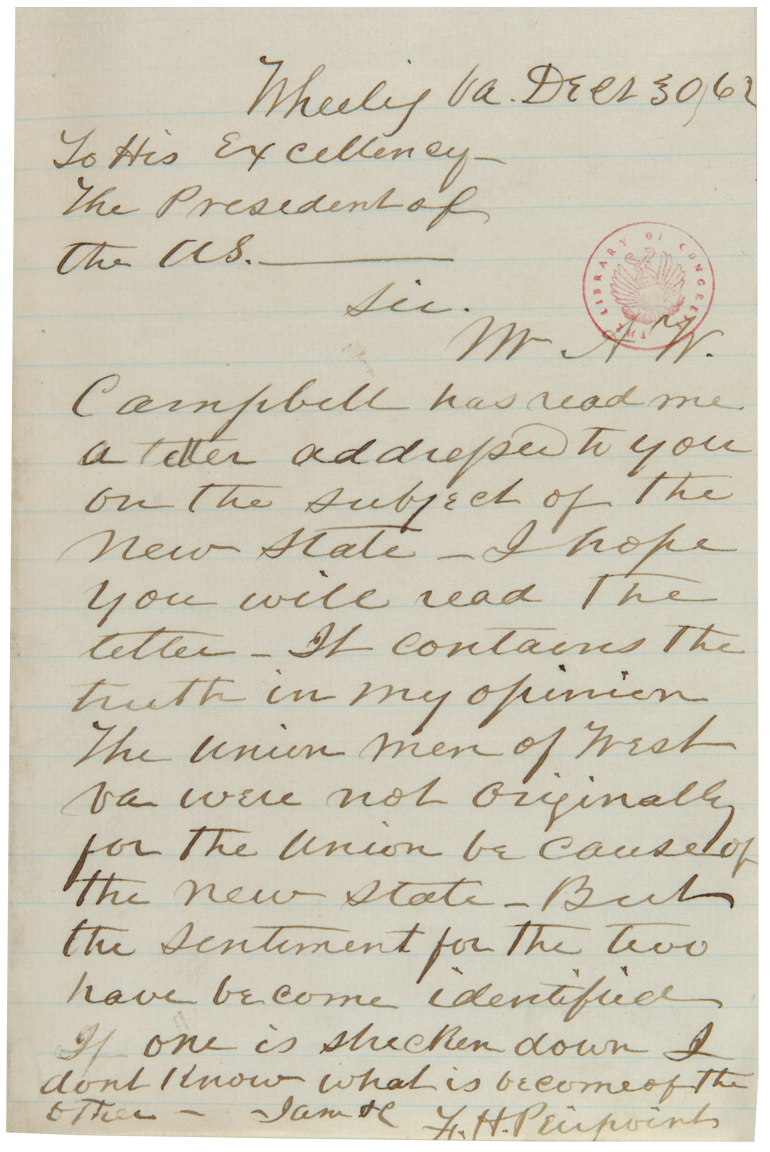 Wheeling Va. Dect 30, 62
To His Excellency
The President of
the US.
Sir.
THE LIBRARY OF CONGRESS
Mr A W.
Campbell has read me
a letter addressed to you
on the subject of the
New State – I hope
you will read the
letter – It contains the
truth in my opinion
The Union men of West
Va were not originally
for the Union be cause of
the new state – But
the sentiment for the two
have become identified
If one is stricken down I
dont know what is become of the
other – I am &c F. H. Peirpoint